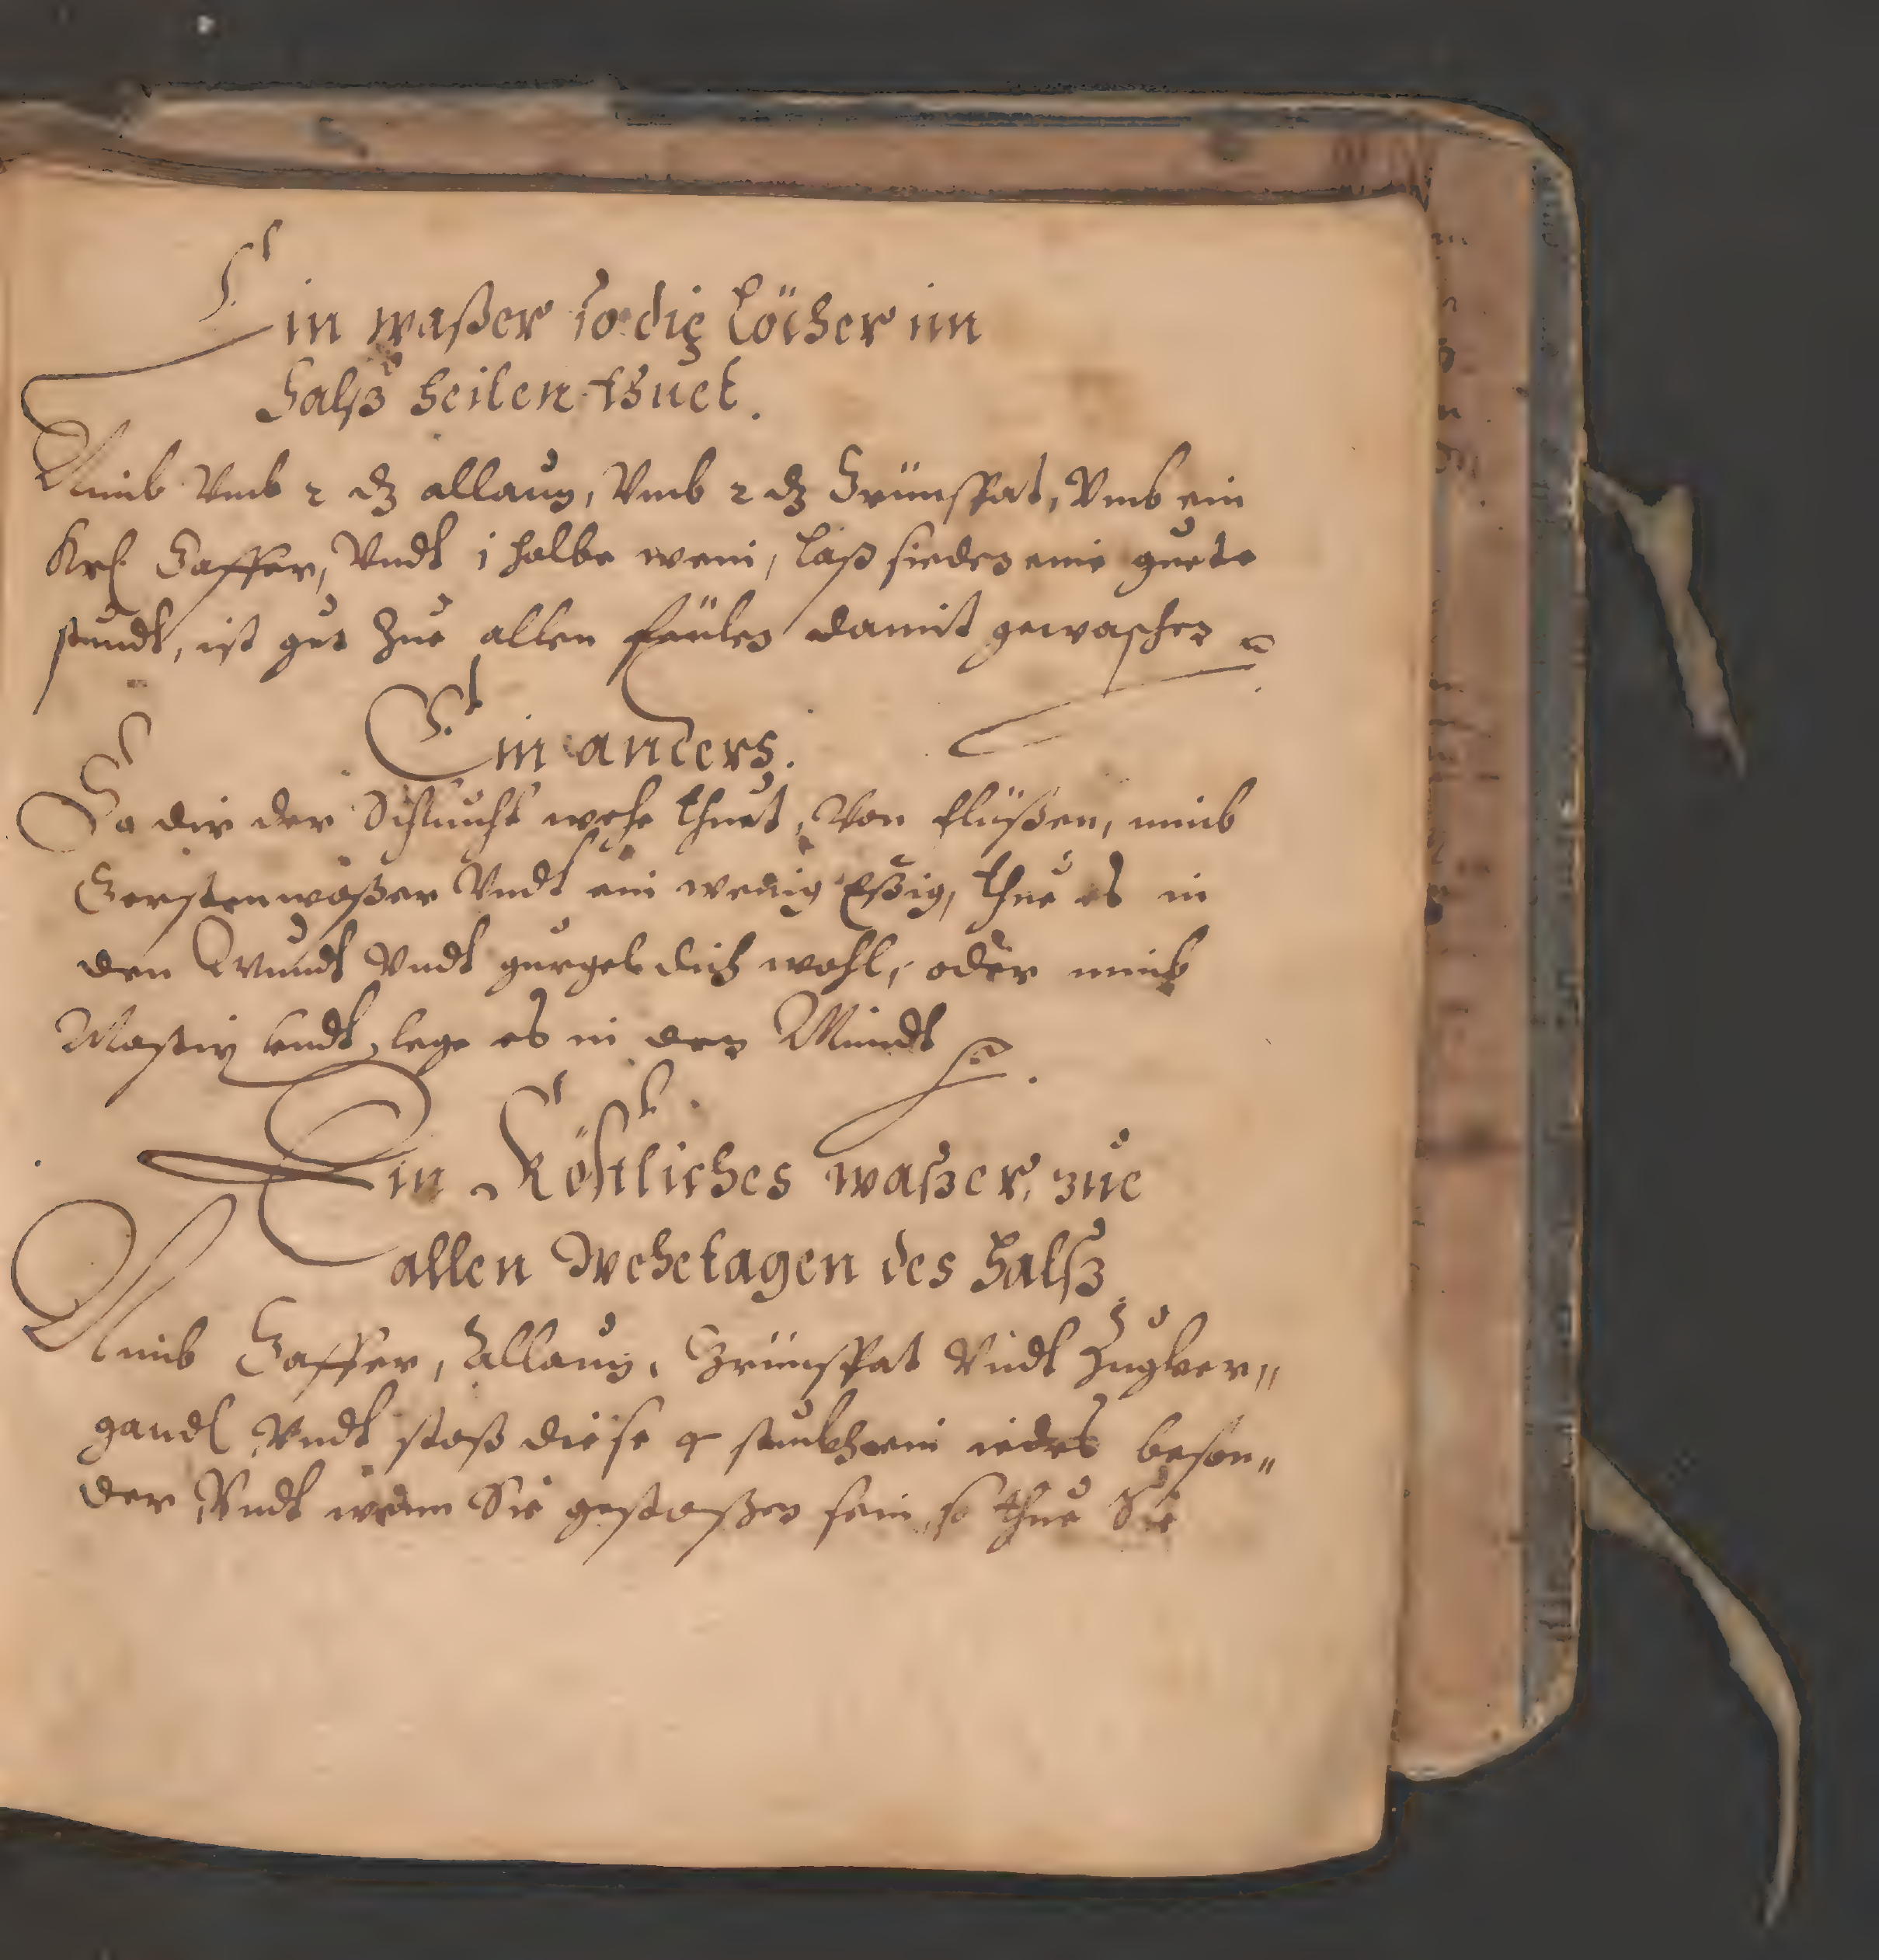 Ein waßer so die Löcher im
Halß heilen thuet.
Nimb Vmb 2 ₰ allaun, Vmb 2 ₰ Grünspat, Vmb ein
Saffer, Vndt 1 halbe wein, laß sieden eine guete
stundt, ist gut Zue allen feülen damit gewaschen
Ein anders.
So dir der Schlundt wehe thuet, Von flüßen, nimb
Gerstenwaßer Vndt ein wenig Eßig, thue es in
den Mundt Vndt gurgel dich wohl, oder nimb
Mastix Vndt lege es in den Mundt
Ein Köstliches waßer, zue
allen Wehetagen des Halß
Nimb Saffer, Allaun, Grünspat Vndt
Vndt stoß diese 4 stuckh ein iedes beson„
der Vndt wenn Sie gestoßen sein, so thue Sie